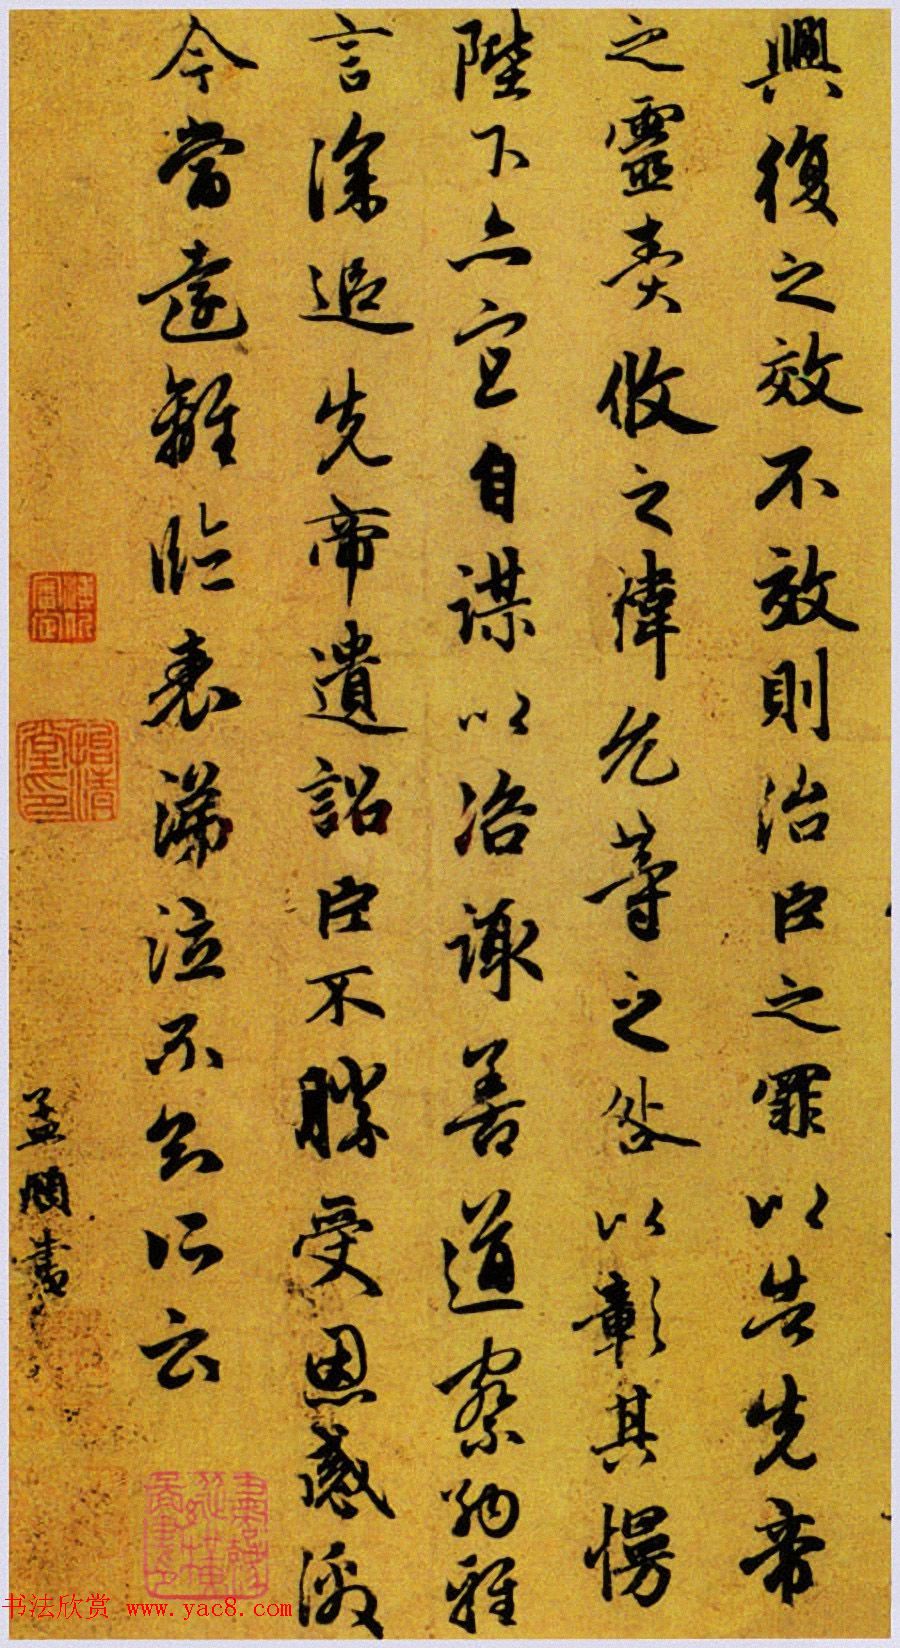 興復之效不效則治臣之罪以告先帝
之靈責攸之禕允等之咎以彰其慢
陛下亦宜自謀以咨諏善道察納雅
言深追先帝遺詔臣不勝受恩感激
今當遠離臨表涕泣不知所云
孟頫書
书法欣赏 www.yac8.com